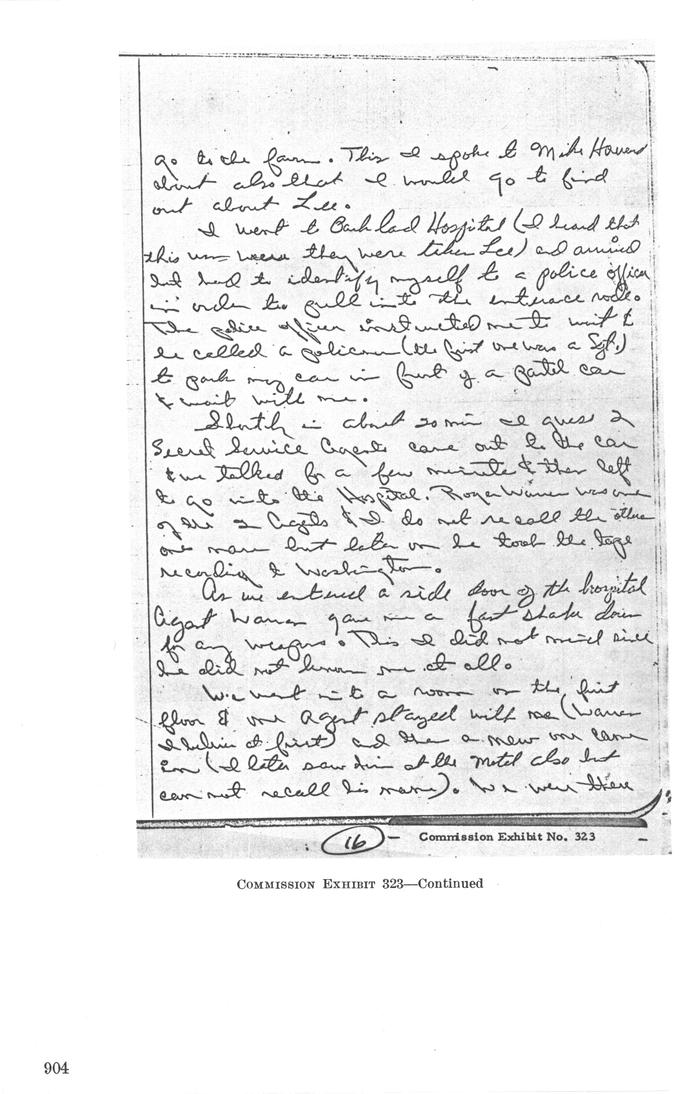 go to the farm. This I spoke to Mike Howard
about also that I would go to find
out about Lee.
I went to Parkland Hospital (I heard that
this was were they were taken Lee) and arrived
but had to identify myself to a police officer
in order to pull into the entrace rode.
The police officer instructed me to wait &
he called a policman (the first one was a Sgt.)
to park my car in front of a patrol car
& wait with me.
Shortly in about 20 min I guess 2
Secret Service Agents came out to the car
& we talked for a few minute & then left
to go into the Hospital. Roger Warner was one
of the 2 Agents & I do not recall the other
one name but later on he took the tape
recording to Washington.
As we entered a side door of the hospital
Agent Warner gave me a fast shake down
for any weapons. This I did not mind since
he did not know me at all.
We went into a room on the first
floor & one Agent stayed with me (Warner
I believe at first) and then a new one came
in (I later saw him at the Motel also but
can not recall his name). We were there
16 - Commission Exhibit No. 323
COMMISSION EXHIBIT 323—Continued
904